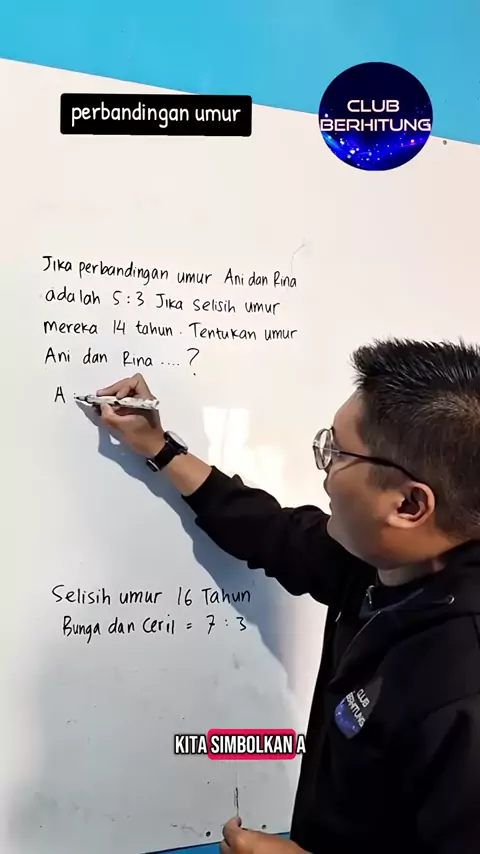 perbandingan umur
CLUB
BERHITUNG
Jika perbandingan umur Ani dan Rina
adalah 5 : 3 Jika selisih umur
mereka 14 tahun. Tentukan umur
Ani dan Rina .... ?
A :
Selisih umur 16 Tahun
Bunga dan Ceril = 7 : 3
CLUB
BERHITUNG
KITA SIMBOLKAN A